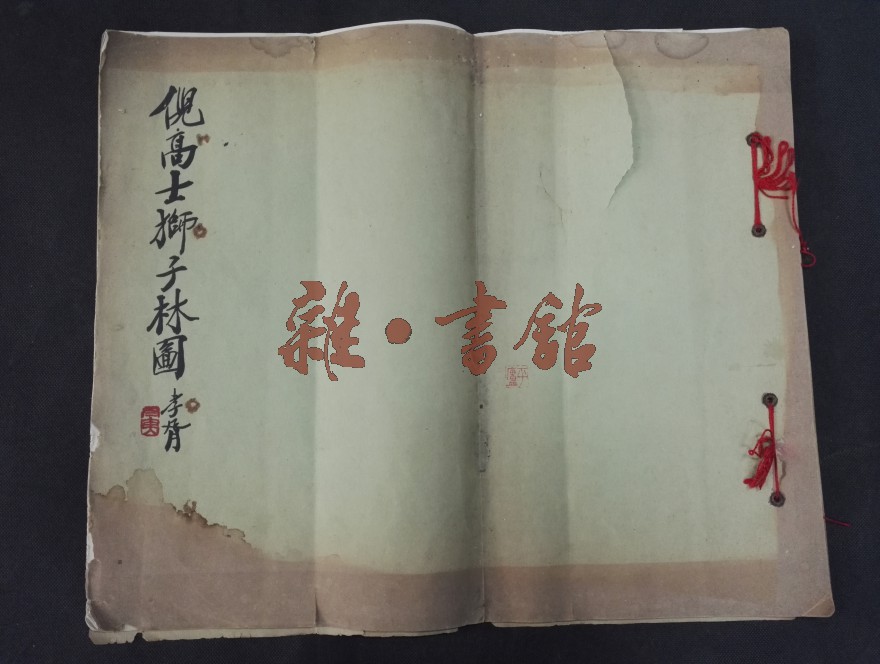 倪高士獅子林圖
孝胥
雜·書館